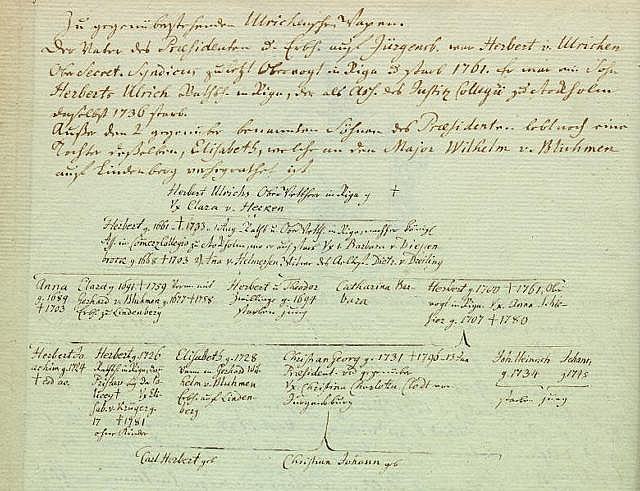 Zu gegenüberstehenden Ulrichenschen Wapen.
Der Vater des Præsidenten u. Erbh. auf Jürgensb. war Herbert v. Ulrichen
Ober Secret. Syndicus zuletzt Obervogt in Riga u starb 1761. Er war ein Sohn
Herberts Ulrich Rathsh. in Riga, der als Ass. des Justiz Collegii zu Stockholm
daselbst 1736 starb.
Außer den 2 gegenüber benannten Söhnen des Præsidenten lebt noch eine
Tochter desselben, Elisabeth, welche an den Major Wilhelm v. Bluhmen
auf Lindenberg verheyrathet ist.
Herbert Ulrichs Ober in Riga g †
Ux Clara v. Hecken
Herbert g. 1661 † u Ober in Riga
Ass. im Comerz Collegio zu Stockholm, Ux 1 Barbara v. Diepen
brock g. 1668 † 1703 2 Anna v. Helmersen Dietr. v. Breiling
Anna g. 1689 † 1703
Clara g 1691 † 1759 Gerhard v. Bluhmen g. 1677 † 1758 Erbh. zu Lindenberg
Herbert u Theodor Zwillinge g. 1694 starben jung
Catharina Barbara
Herbert g. 1700 † 1761, Obervogt in Riga. Ux. Anna g. 1707 † 1780
Herbert Joachim g. 1724 † eod ao.
Herbert g. 1726 v. Krüger g. 17 † 1781 ohne Kinder
Elisabeth g. 1728 Gerhard Wilhelm v. Bluhmen Erbh. auf Lindenberg
Christian Georg g. 1731 † Præsident. vid gegenüber Ux Christina Charlotta Clodt von Jürgensburg
Joh. Heinrich g. 1734 Johann, g. starben jung
Carl Herbert geb
Christian Johann geb